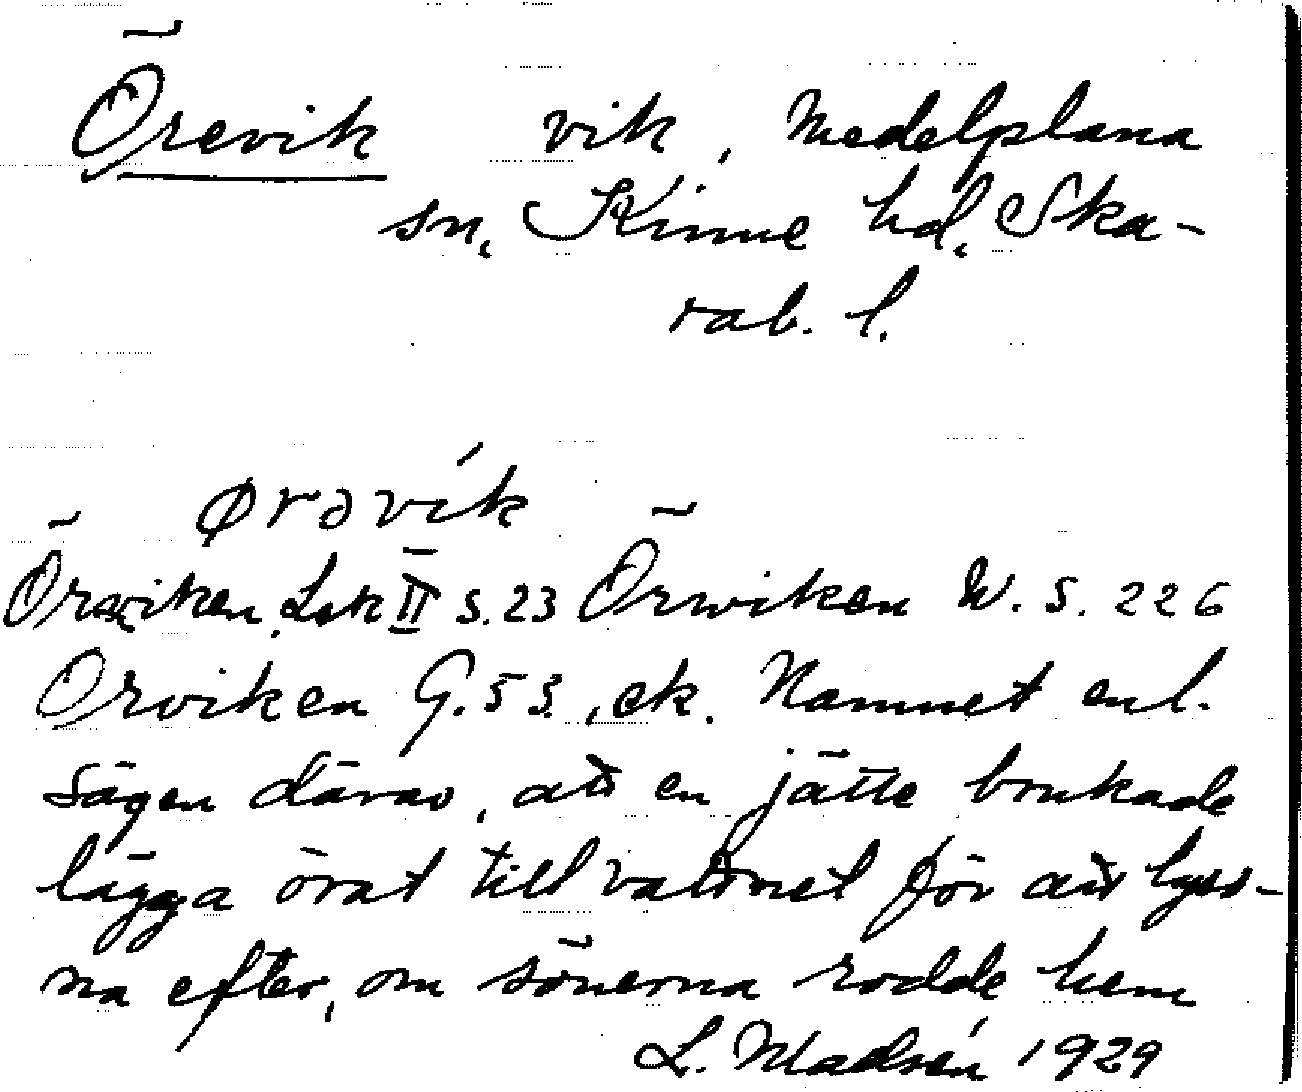 Örevik vik, Medelplana
sn, Kinne hd, Ska-
rab. l.
ørəvík
Örwiken, Lsk II s. 23 Örwiken W. s. 226
Orviken G. 53, ek. Namnet enl.
sägen därav, att en jätte brukade
lägga örat till vattnet för att lyss-
na efter, om sönerna rodde hem
L. Madsén 1929